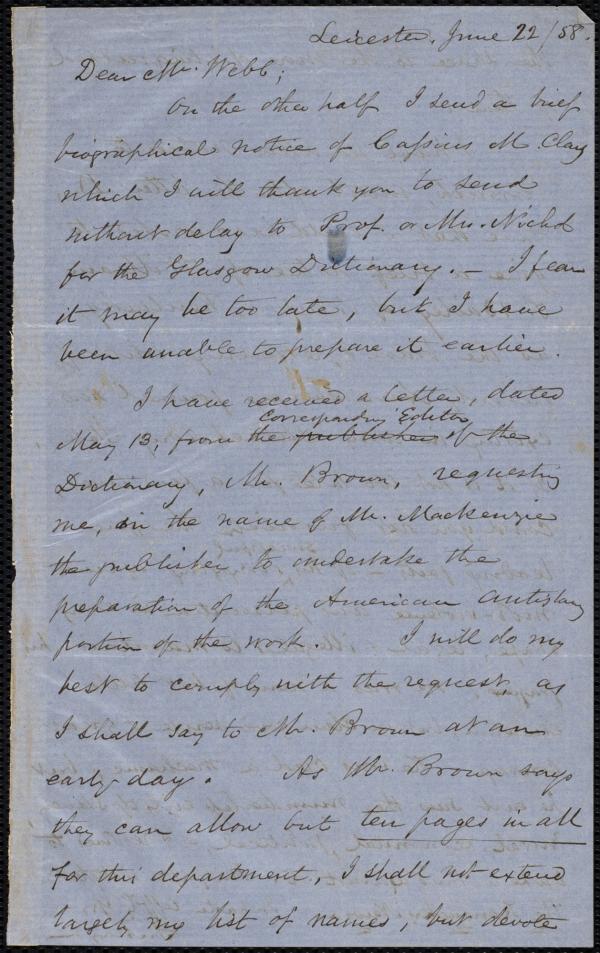 Leicester, June 22/58.
Dear Mr. Webb;
On the other half I send a brief
biographical notice of Cassius M. Clay
which I will thank you to send
without delay to Prof. or Mrs. Nichol
for the Glasgow Dictionary. – I fear
it may be too late, but I have
been unable to prepare it earlier.
I have received a letter, dated
Corresponding Editor
May 13, from the publisher of the
Dictionary, Mr. Brown, requesting
me, in the name of Mr. Mackenzie
the publisher, to undertake the
preparation of the American Antislavy
portion of the work. I will do my
best to comply with the request, as
I shall say to Mr. Brown at an
early day. As Mr. Brown says
they can allow but ten pages in all
for this department, I shall not extend
largely my list of names, but devote